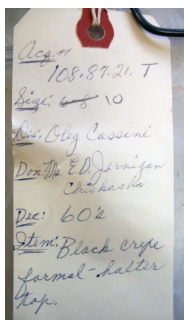 Acq #
108.87.21. T
Size: 6-8 10
Des: Oleg Cassini
Don: Ms E.D. Jernigan
Chickasha
Dec: 60's
Item: Black crepe
formal-halter
top.